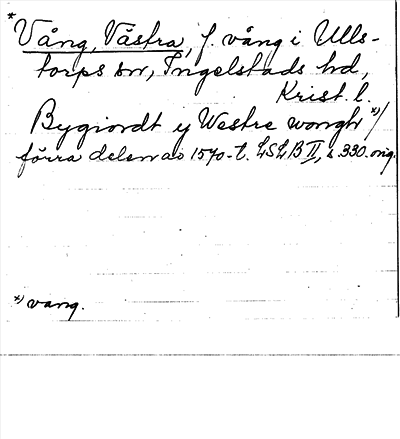 * Vång, Västra, f. vång i Ulls-
torps sn, Ingelstads hd,
Krist. l.
Bygiordt ij Westre wongh x)/
förra delen av 1570-t. LSLB II, s. 330. orig.
x) vang.